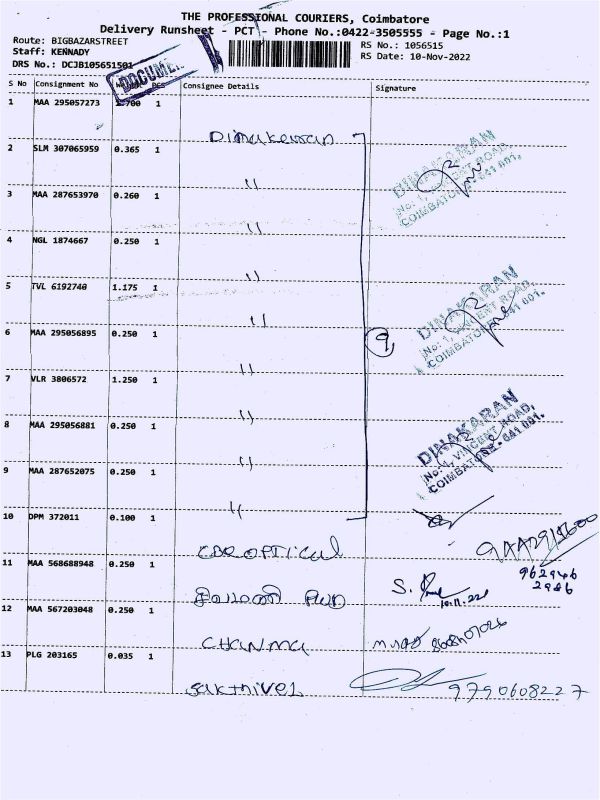 THE PROFESSIONAL COURIERS, Coimbatore
Delivery Runsheet - PCT - Phone No.:0422-3505555 - Page No.:1
Route: BIGBAZARSTREET
Staff: KENNADY
DRS No.: DCJB105651501
RS No.: 1056515
RS Date: 10-Nov-2022
S No Consignment No PCS Consignee Details Signature
1 MAA 295057273 1
Dinakaran
2 SLM 307065959 0.365 1
"
3 MAA 287653970 0.260 1
"
4 NGL 1874667 0.250 1
"
5 TVL 6192740 1.175 1
"
6 MAA 295056895 0.250 1
"
7 VLR 3806572 1.250 1
"
8 MAA 295056881 0.250 1
"
9 MAA 287652075 0.250 1
"
10 DPM 372011 0.100 1
CBR OPTICAL
11 MAA 568688948 0.250 1
12 MAA 567203048 0.250 1
CHANMA
13 PLG 203165 0.035 1
Sakthivel 9790608227
DOCUMEN
DINAKARAN
No: 1, VINCENT ROAD,
COIMBATORE - 641 001.
DINAKARAN
No: 1, VINCENT ROAD,
COIMBATORE - 641 001.
DINAKARAN
No: 1, VINCENT ROAD,
COIMBATORE - 641 001.
9
962946
2986
S.
10.11.22